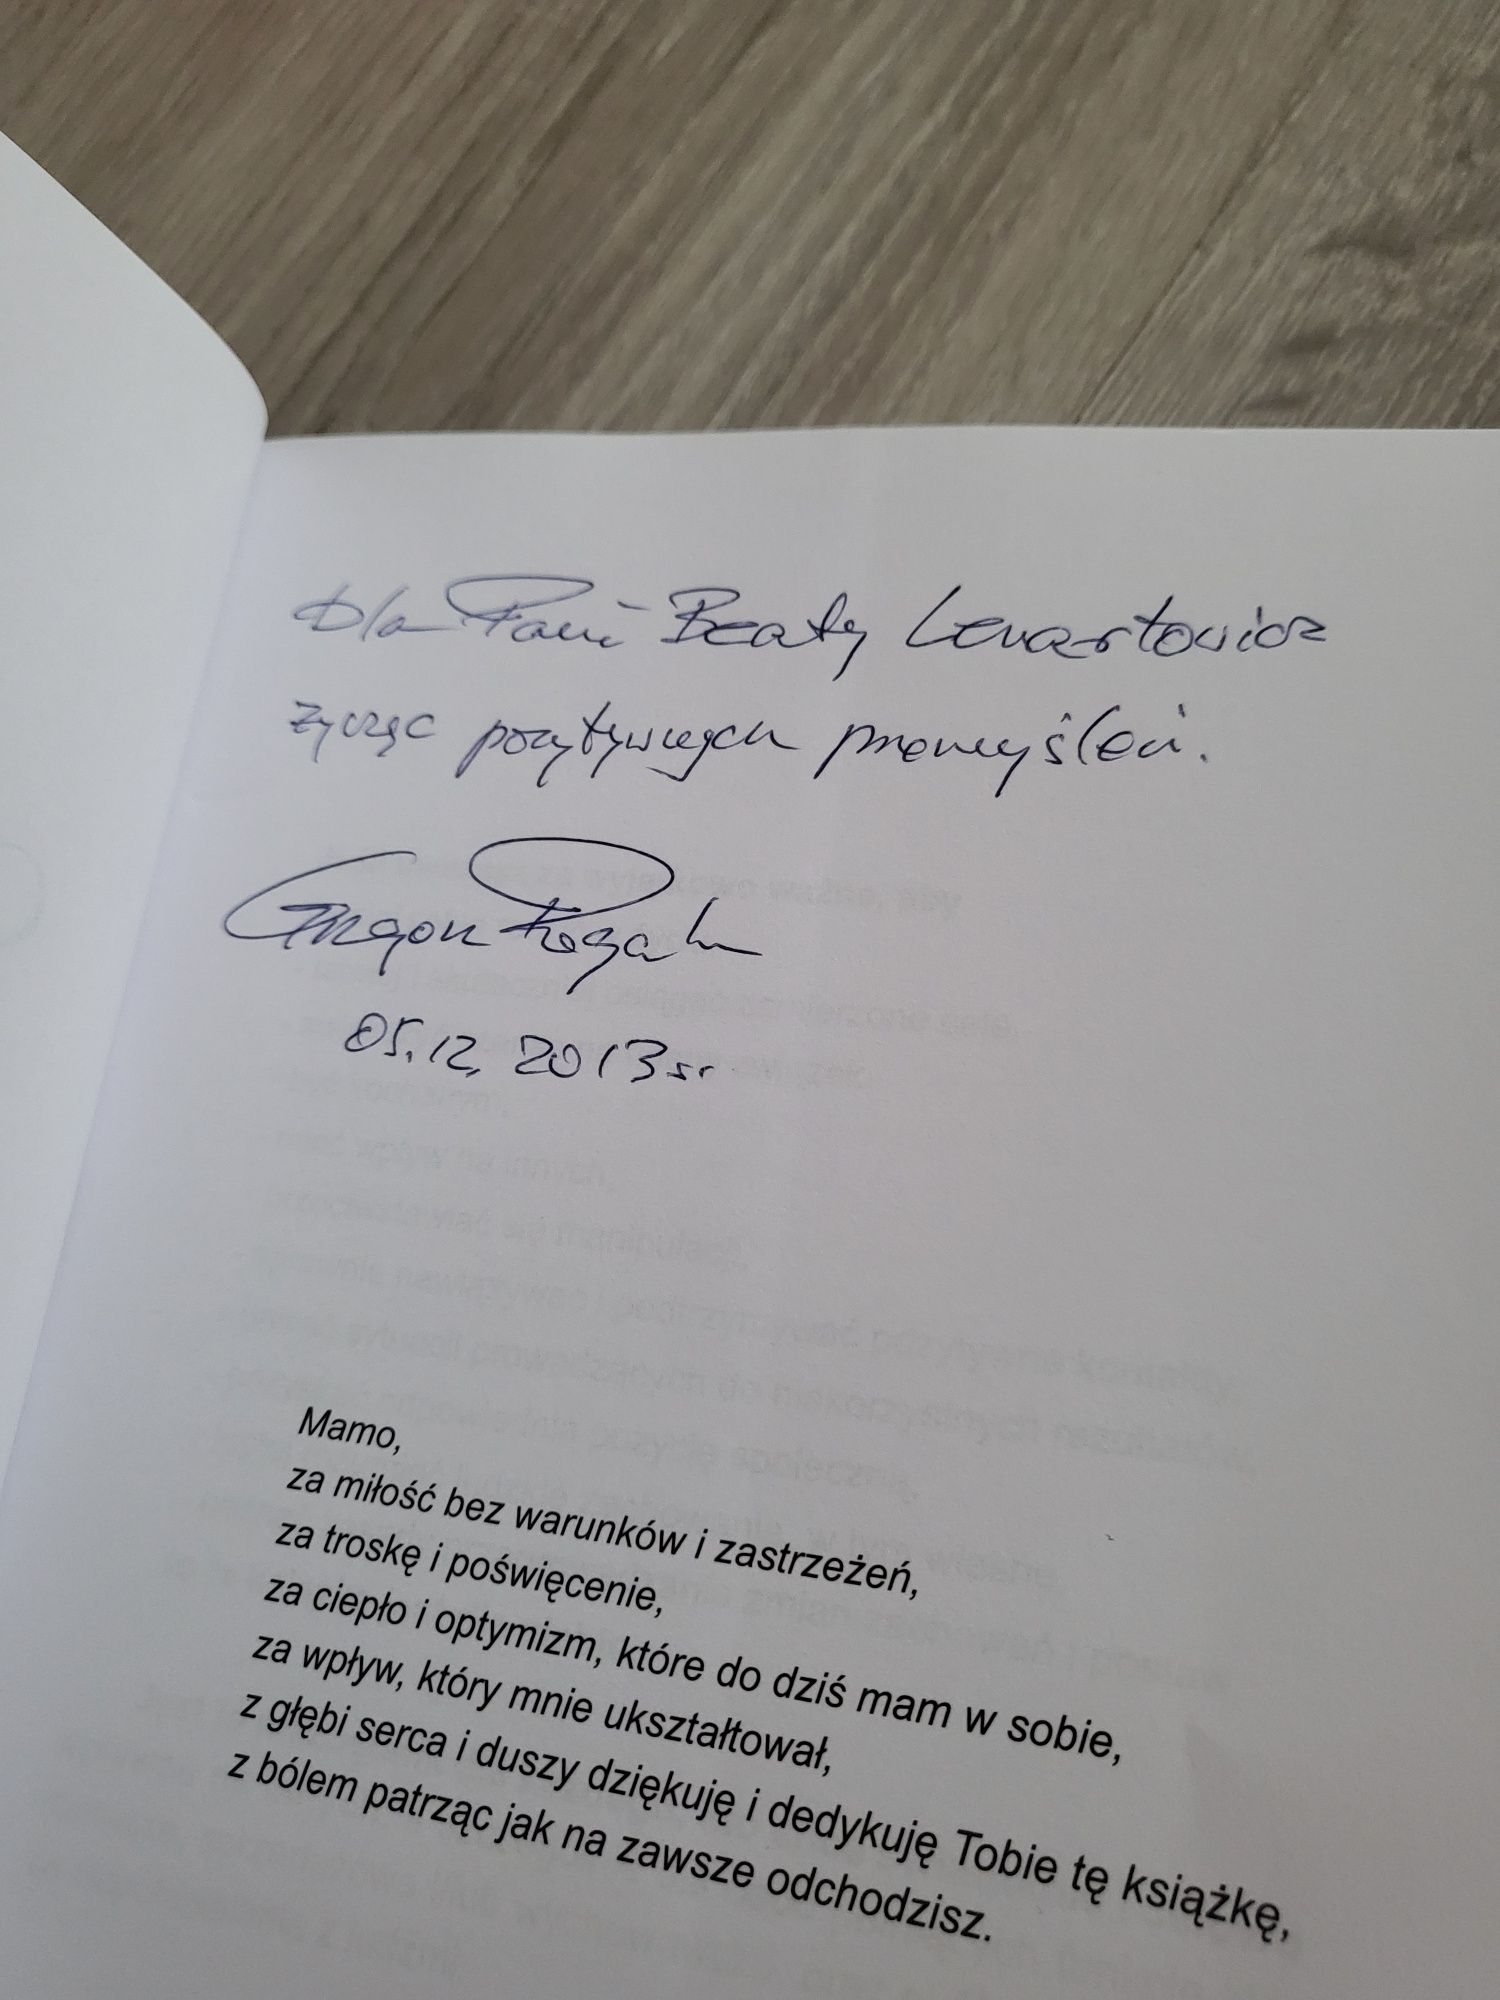 Dla Pani Beaty Lenartowicz
życząc pozytywnych przemyśleń.
05.12.2013 r.
Mamo,
za miłość bez warunków i zastrzeżeń,
za troskę i poświęcenie,
za ciepło i optymizm, które do dziś mam w sobie,
za wpływ, który mnie ukształtował,
z głębi serca i duszy dziękuję i dedykuję Tobie tę książkę,
z bólem patrząc jak na zawsze odchodzisz.